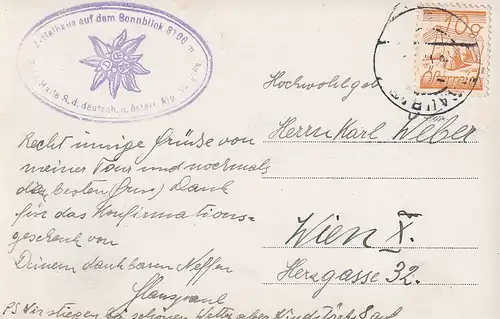 Zittelhaus auf dem Sonnblick 3106 m
d. deutsch. u. österr. Alp.
Hochwohlgeb
Herrn Karl Weber
Wien X.
Herzgasse 32.
Recht innige Grüße von
meiner Tour und nochmals
besten Dank
für das Konfirmations=
geschenk von
Deinem dankbaren Neffen
Hanspaul
PS Wir stiegen bei schönem Wetter aber